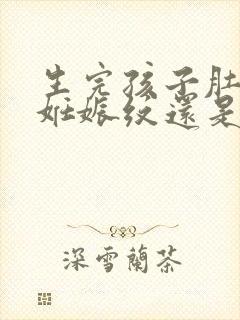 生完孩子肚
妊娠纹還是
深雪蘭茶